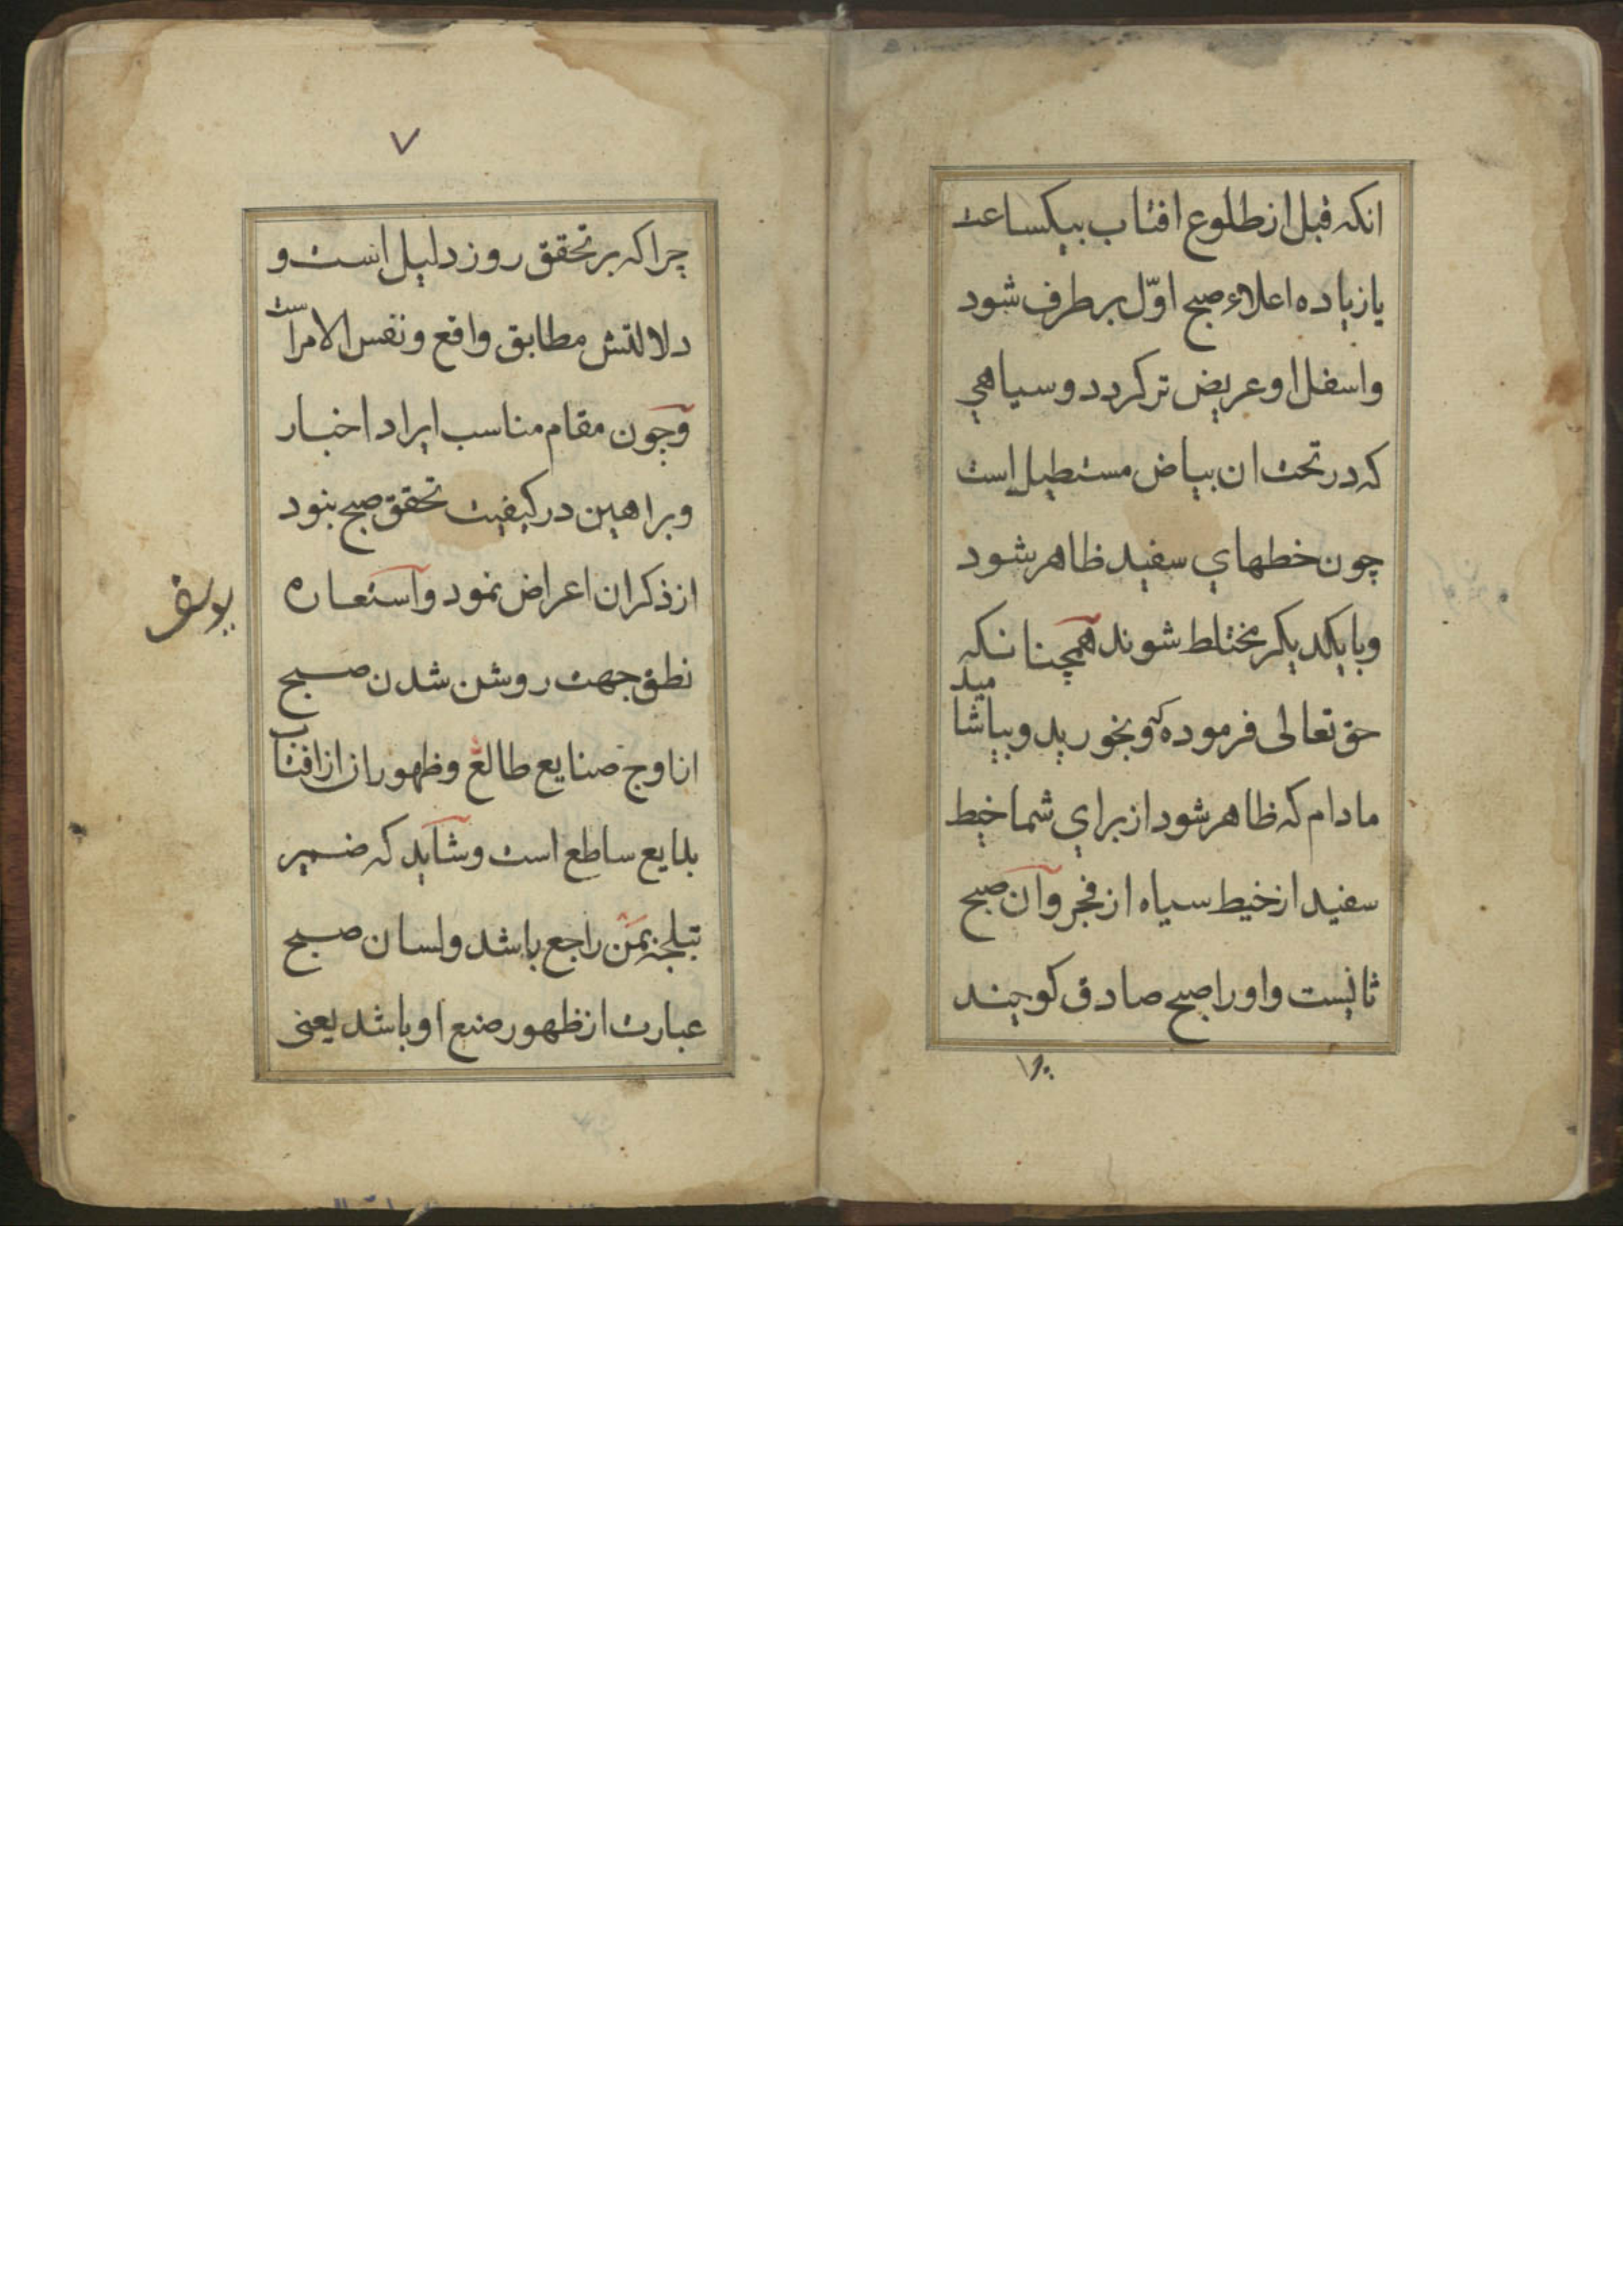 انکه قبل از طلوع افتاب بیکساعت
یا زیاده اعلاء صبح اوّل بر طرف شود
واسفل او عریض تر کردد و سیاهی
که در تحت ان بیاض مستطیل است
چون خطهای سفید ظاهر شود
وبا یکدیکر مختلط شوند همچنانکه
حق تعالی فرموده که وبخورید وبیاشامید
مادام که ظاهر شود از برای شما خیط
سفید از خیط سیاه از فجر وآن صبح
ثانیست واورا صبح صادق کوچیند
۷
چرا که بر تحقق روز دلیل است و
دلالتش مطابق واقع ونفس الامر است
وچون مقام مناسب ایراد اخبار
وبراهین در کیفیت تحقق صبح بنود
از ذکر ان اعراض نمود وآستعاره
نطق جهت روشن شدن صبح
از اوج صنایع طالع وظهور راز از افتاب
بدایع ساطع است وشاید که ضمیر
تبلجه بمن راجع باشد ولسان صبح
عبارت از ظهور صنع او باشد یعنی